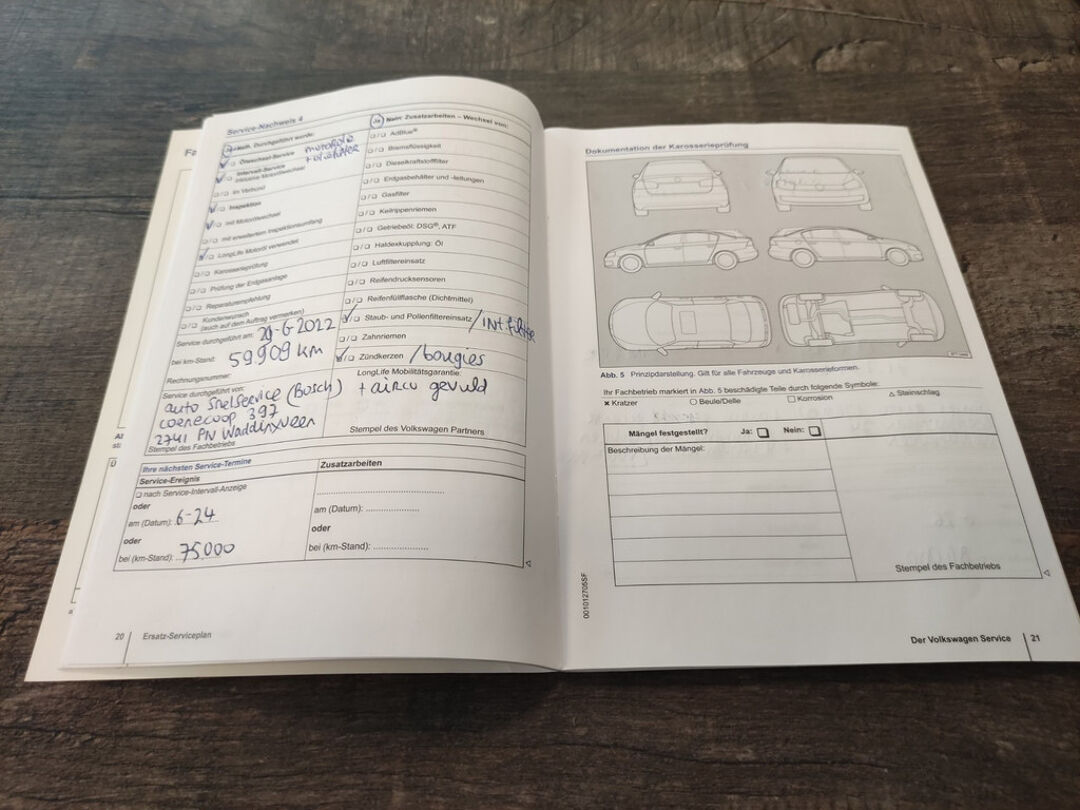 Fa
Service-Nachweis 4
Ja Nein: Durchgeführt wurde:
Ölwechsel-Service motorolie
Intervall-Service + oliefilter
inklusive Motorölwechsel
im Verbund
Inspektion
mit Motorölwechsel
mit erweitertem Inspektionsumfang
LongLife Motoröl verwendet
Karosserieprüfung
Prüfung der Erdgasanlage
Reparaturempfehlung
Kundenwunsch
(auch auf dem Auftrag vermerken)
Service durchgeführt am: -6-2022
bei km-Stand: 59909 km
Rechnungsnummer:
Service durchgeführt von:
auto Snelservice (Bosch)
coenecoop 397
2741 PN Waddinxveen
Stempel des Fachbetriebs
Ja Nein: Zusatzarbeiten – Wechsel von:
AdBlue®
Bremsflüssigkeit
Dieselkraftstofffilter
Erdgasbehälter und -leitungen
Gasfilter
Keilrippenriemen
Getriebeöl: DSG®, ATF
Haldexkupplung: Öl
Luftfiltereinsatz
Reifendrucksensoren
Reifenfüllflasche (Dichtmittel)
Staub- und Pollenfiltereinsatz / INt filter
Zahnriemen
Zündkerzen / bougies
LongLife Mobilitätsgarantie:
+ airco gevuld
Stempel des Volkswagen Partners
Ihre nächsten Service-Termine
Service-Ereignis
nach Service-Intervall-Anzeige
oder
am (Datum): 6-24
oder
bei (km-Stand): 75000
Zusatzarbeiten
am (Datum):
oder
bei (km-Stand):
20 Ersatz-Serviceplan
Dokumentation der Karosserieprüfung
Abb. 5 Prinzipdarstellung. Gilt für alle Fahrzeuge und Karosserieformen.
Ihr Fachbetrieb markiert in Abb. 5 beschädigte Teile durch folgende Symbole:
Kratzer Beule/Delle Korrosion Steinschlag
Mängel festgestellt? Ja: Nein:
Beschreibung der Mängel:
Stempel des Fachbetriebs
001012705SF
Der Volkswagen Service 21